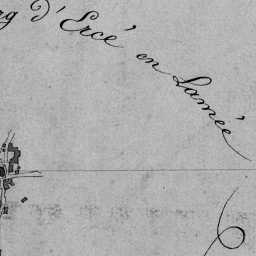 g d'Ercé en Lamée